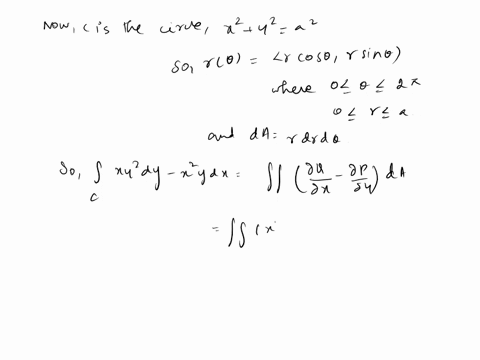 Now, C is the circle, x² + y² = a²
so, r(θ) = <r cosθ, r sinθ)
where 0 ≤ θ ≤ 2π
0 ≤ r ≤ a
and dA = r dr dθ
So, ∫_C xy² dy - x²y dx = ∬ (∂Q/∂x - ∂P/∂y) dA
= ∬ (x